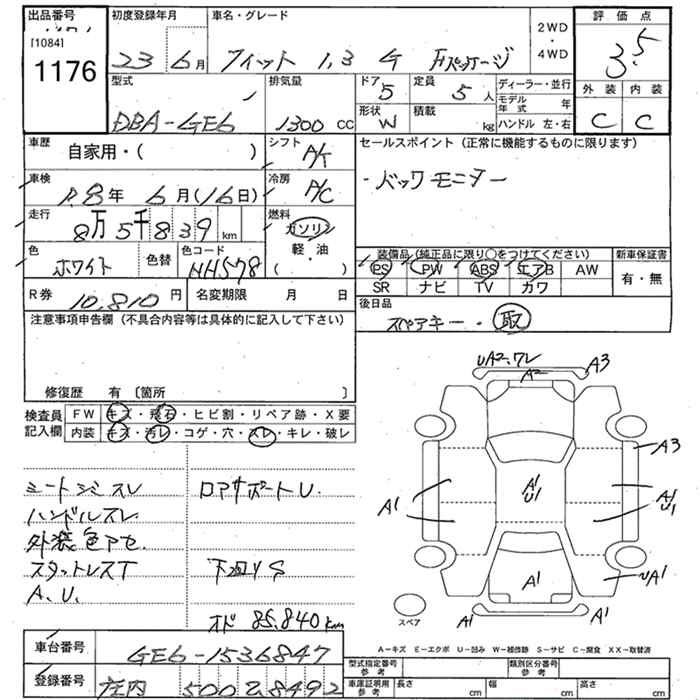 出品番号 初度登録年月 車名・グレード 2WD・4WD 評価点
[1084]
1176 23年 6月 フィット 1,3 G Fパッケージ 3.5
型式 排気量 ドア 5 定員 5人 ディーラー・並行 外装 内装
DBA-GE6 1300 CC 形状 W 積載 kg モデル年式 年 C C
ハンドル 左・右
車歴 自家用・( ) シフト A/T セールスポイント (正常に機能するものに限ります)
車検 R8年 6月(16日) 冷房 A/C ・バックモニター
走行 8万5千839km 燃料 ガソリン
軽・油
( )
色 ホワイト 色替 色コード NH578 装備品 (純正品に限り○をつけてください) 新車保証書
PS PW ABS エアB AW 有・無
SR ナビ TV カワ
R券 10,810円 名変期限 月 日 後日品
スペアキー・取
注意事項申告欄 (不具合内容等は具体的に記入して下さい)
修復歴 有 〔箇所 〕
検査員記入欄 FW キズ・飛石・ヒビ割・リペア跡・X要
内装 キズ・汚レ・コゲ・穴・スレ・キレ・破レ
シートシミスレ ロアサポートU.
ハンドルスレ
外装色アセ.
スタットレスT 下廻りS
A.U.
オド 85,840km
UA2.ワレ A3
A2
A3
A1 A1 U1 A1 U1
UA1
A1
A1
スペア
A-キズ E-エクボ U-凹み W-補修跡 S-サビ C-腐食 XX-取替済
車台番号 GE6-1536847
型式指定番号 参考 類別区分番号 参考
登録番号 庄内 500 る8492
車庫証明用 参考 長さ cm 幅 cm 高さ cm